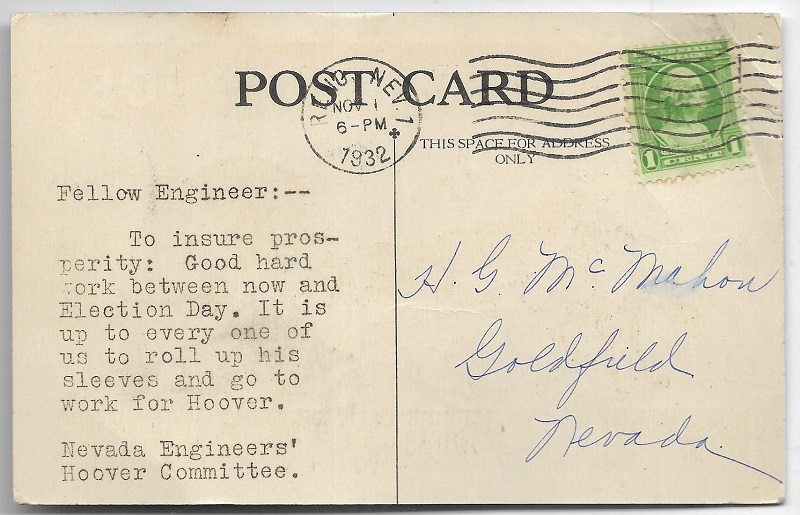 POST CARD
RENO, NEV. 1
NOV 1
6-PM
1932
THIS SPACE FOR ADDRESS
ONLY
1 1
Fellow Engineer:--
To insure pros-
perity: Good hard
work between now and
Election Day. It is
up to every one of
us to roll up his
sleeves and go to
work for Hoover.
Nevada Engineers'
Hoover Committee.
H. G. McMahon
Goldfield
Nevada